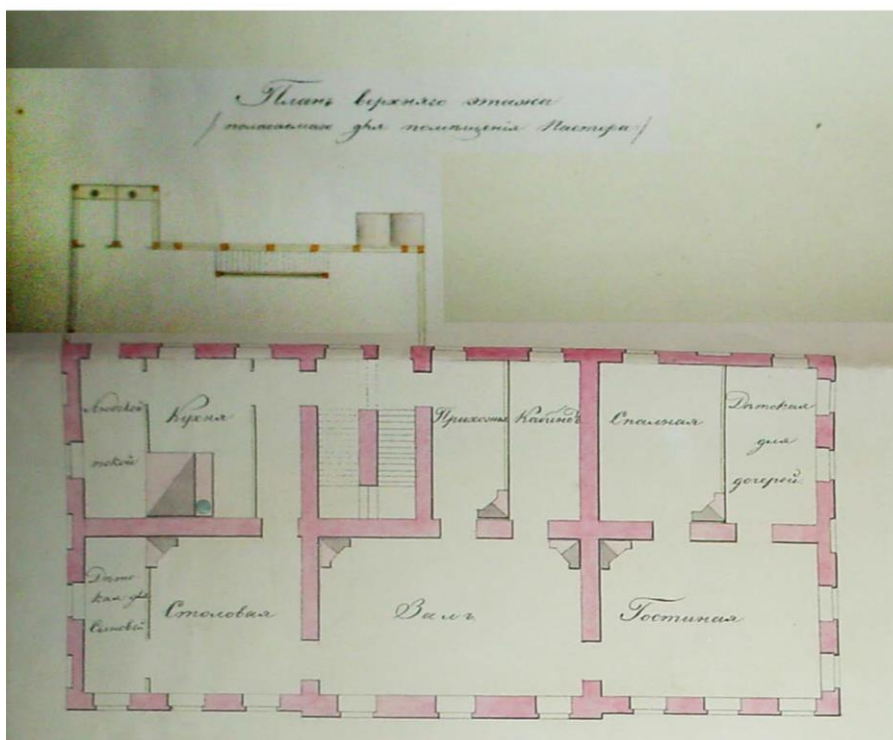 Планъ верхняго этажа
/полагаемаго для помѣщенія Пастора/
Людской
покой
Кухня
Прихожая
Кабинѣ
Спалная
Дѣтская
для
дочерей
Дѣтс
кая для
Сыновей
Столовая
Залъ
Гостиная